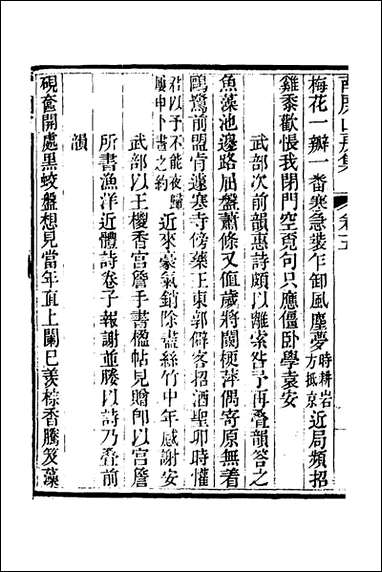 南屏山房集
梅花一瓣一番寒急裝乍卸風塵夢時耕岩方抵京近局頻招
雞黍歡悵我閉門空覓句只應僵卧學袁安
武部次前韻惠詩頗以離索咎予再疊韻答之
魚藻池邊路屈盤蕭條又值歲將闌梗萍偶寄原無着
鷗鷺前盟肯遽寒寺傍藥王東郭僻客招酒聖卯時懽
君以予不能夜歸屢申卜晝之約近來豪氣銷除盡絲竹中年感謝安
武部以王椶香宮詹手書楹帖見贈卽以宮詹
所書漁洋近體詩卷子報謝並媵以詩乃疊前
韻
硯奩開處黑蛟盤想見當年直上闌巳羨棕香騰笈藻